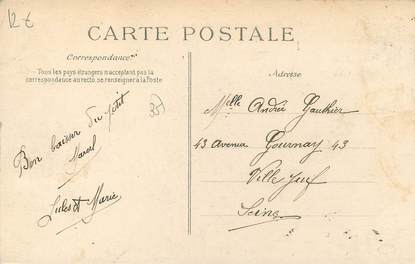 12 €
CARTE POSTALE
Correspondance
Tous les pays étrangers n'acceptant pas la
correspondance au recto, se renseigner à la Poste
Adresse
35
Bon baiser du petit
Marcel
Jules et Marie
Melle André Gauthier
43 Avenue Gournay 43
Ville Juif
Seine